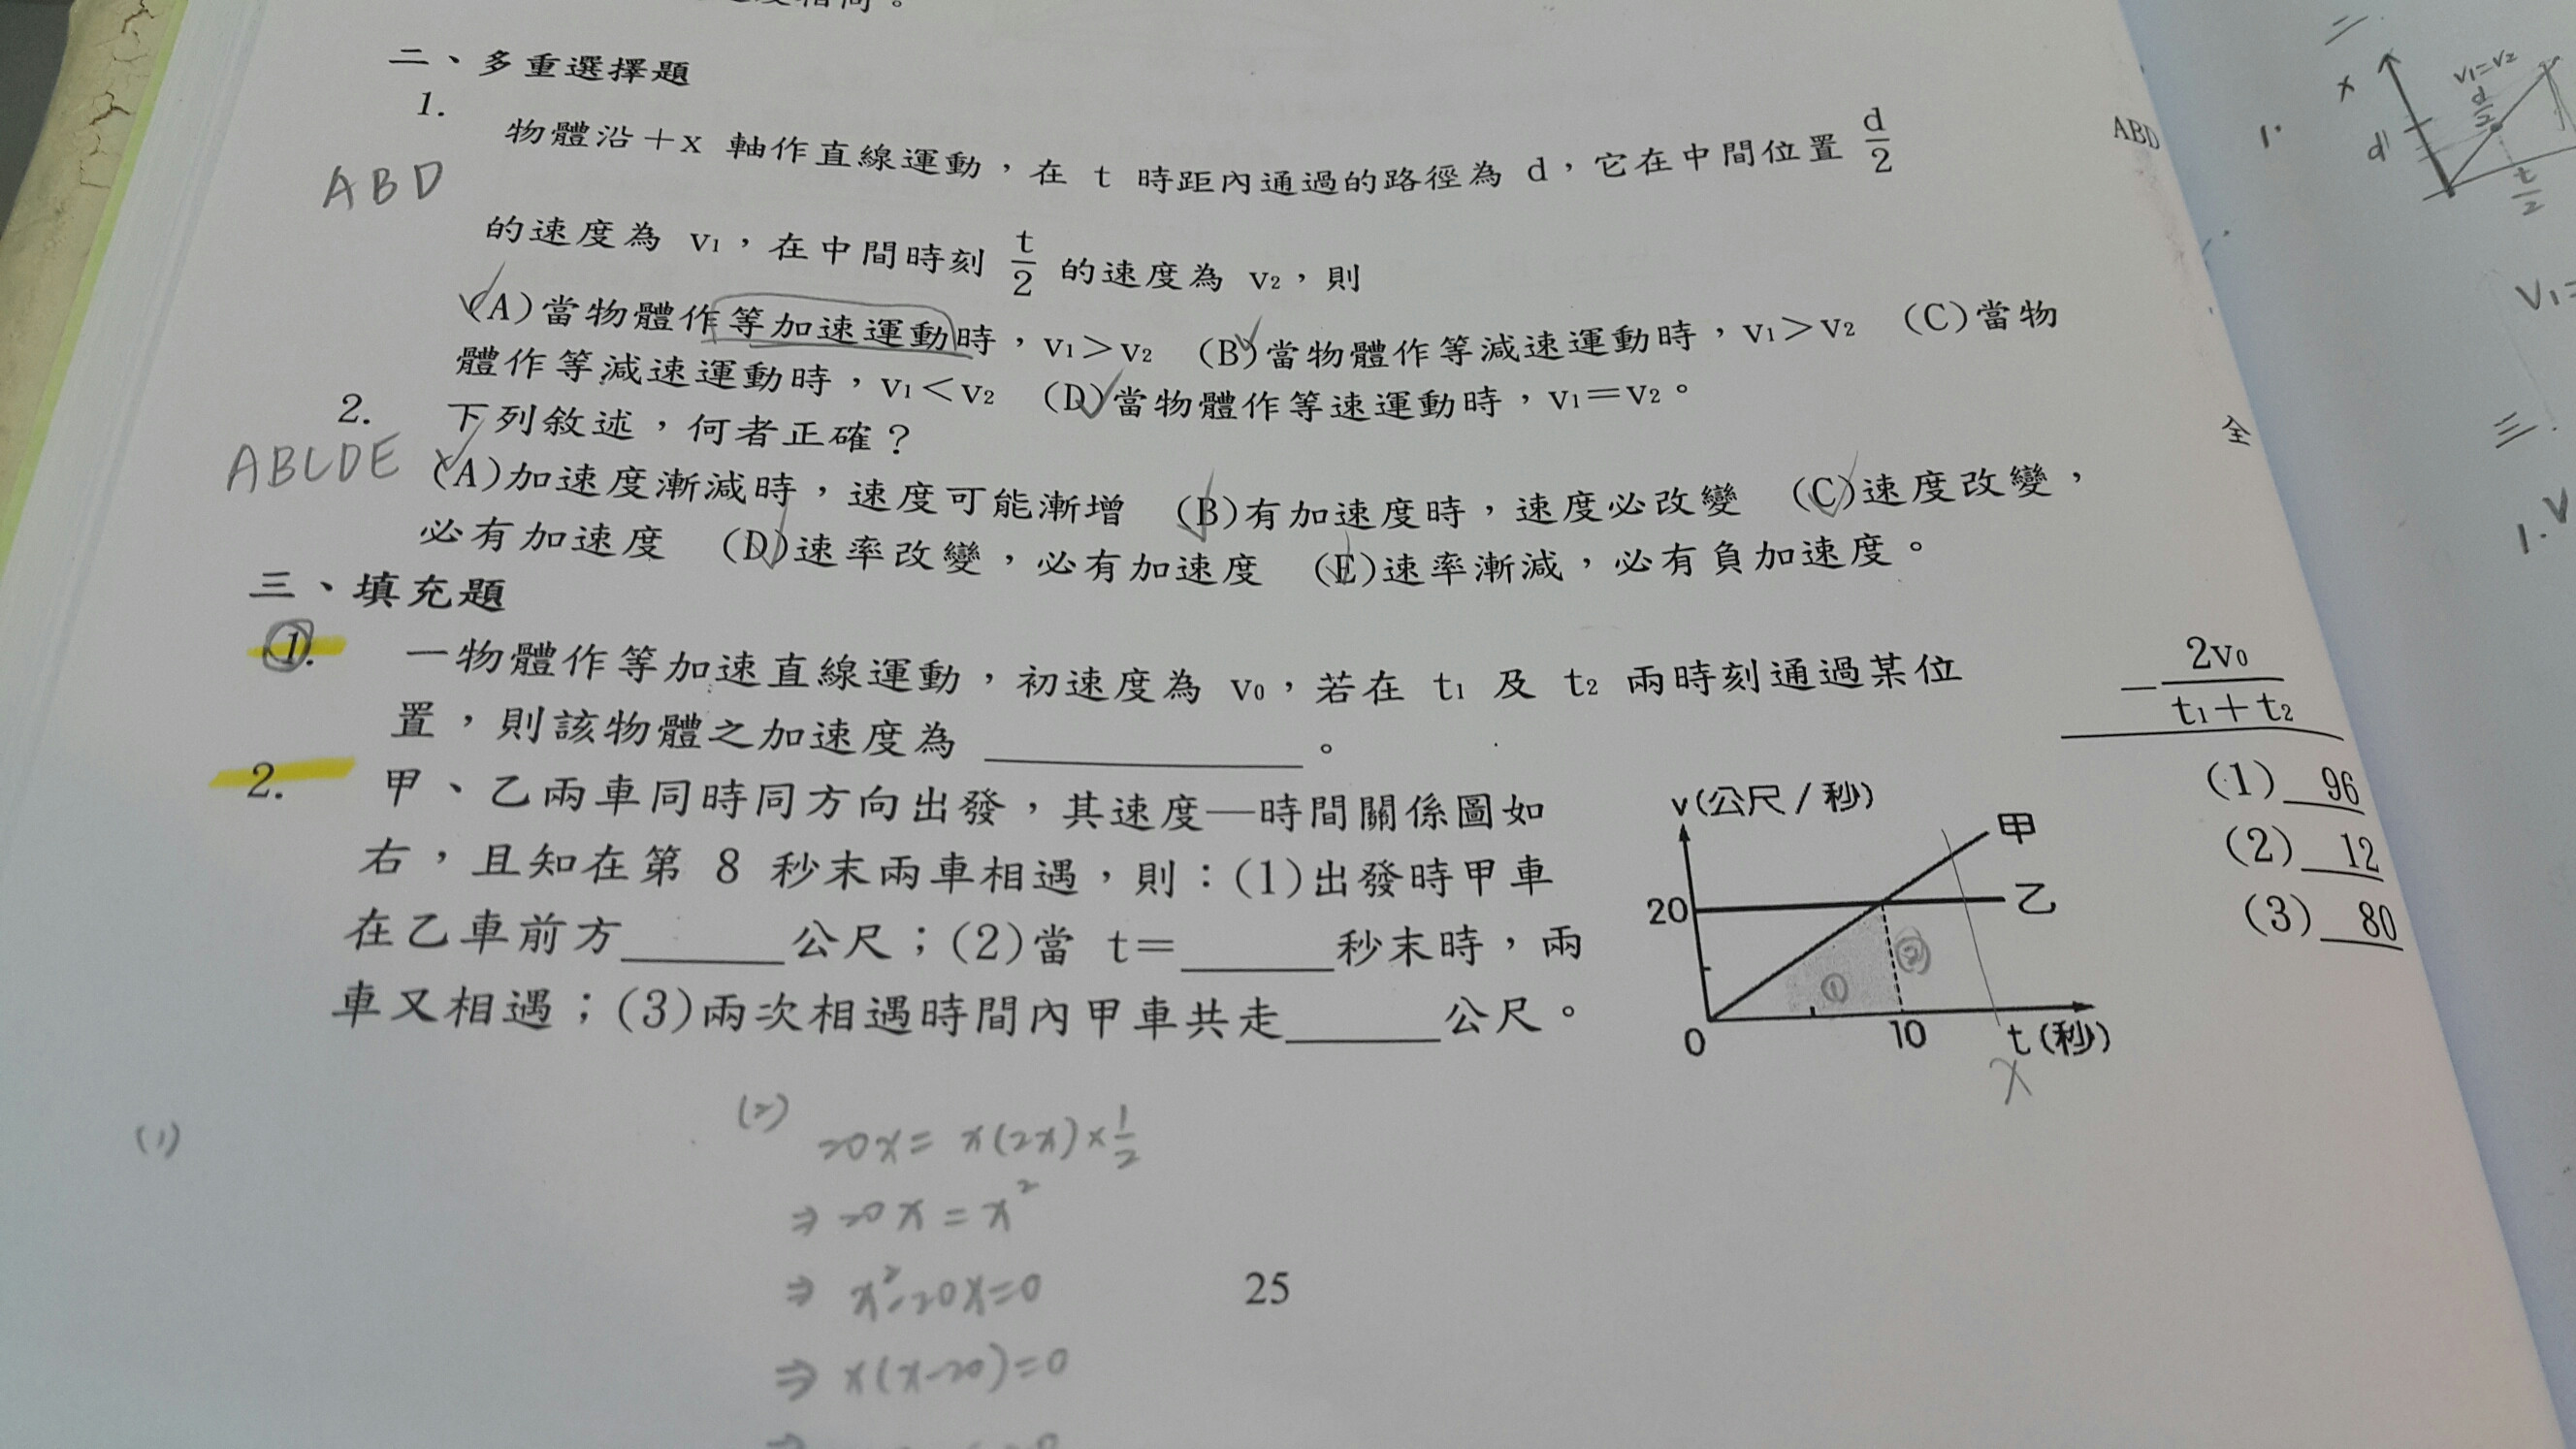 二、多重選擇題
1. 物體沿+x 軸作直線運動，在 t 時距內通過的路徑為 d，它在中間位置 d/2
ABD
的速度為 v₁，在中間時刻 t/2 的速度為 v₂，則
(A)當物體作等加速運動時，v₁>v₂ (B)當物體作等減速運動時，v₁>v₂ (C)當物
體作等減速運動時，v₁<v₂ (D)當物體作等速運動時，v₁=v₂。
ABD
2. 下列敘述，何者正確？
ABCDE
(A)加速度漸減時，速度可能漸增 (B)有加速度時，速度必改變 (C)速度改變，
必有加速度 (D)速率改變，必有加速度 (E)速率漸減，必有負加速度。
全
三、填充題
1. 一物體作等加速直線運動，初速度為 v₀，若在 t₁ 及 t₂ 兩時刻通過某位
置，則該物體之加速度為 ＿＿＿＿。
−2v₀/(t₁+t₂)
2. 甲、乙兩車同時同方向出發，其速度—時間關係圖如
右，且知在第 8 秒末兩車相遇，則：(1)出發時甲車
在乙車前方＿＿＿公尺；(2)當 t=＿＿＿秒末時，兩
車又相遇；(3)兩次相遇時間內甲車共走＿＿＿公尺。
v(公尺/秒)
甲
20
乙
①
②
0
10
t(秒)
x
(1) 96
(2) 12
(3) 80
(1)
(2)
20x= x(2x)×1/2
⇒ 20x=x²
⇒ x²-20x=0
⇒ x(x-20)=0
25
二
1.
x
d
v₁=v₂
d/2
t/2
V₁=
三.
1.V